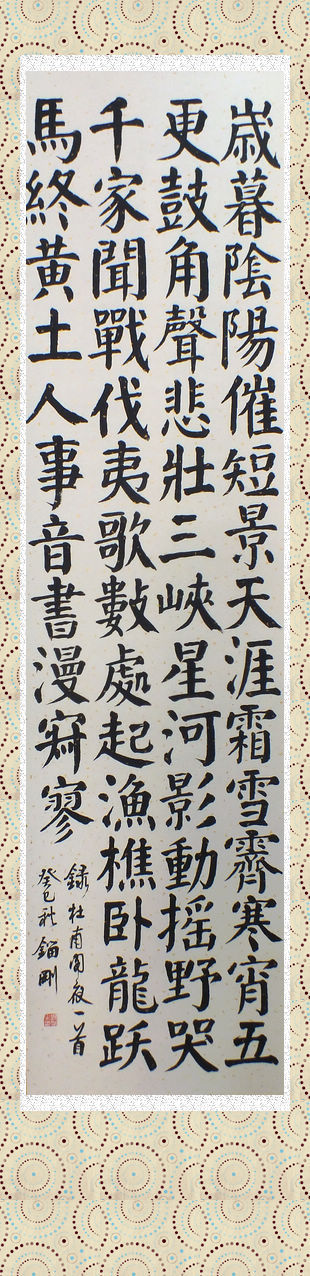 歳暮陰陽催短景天涯霜雪霽寒宵五
更鼓角聲悲壯三峽星河影動搖野哭
千家聞戰伐夷歌數處起漁樵卧龍跃
馬終黄土人事音書漫寂寥
錄杜甫閣夜一首
癸巳秋 剛